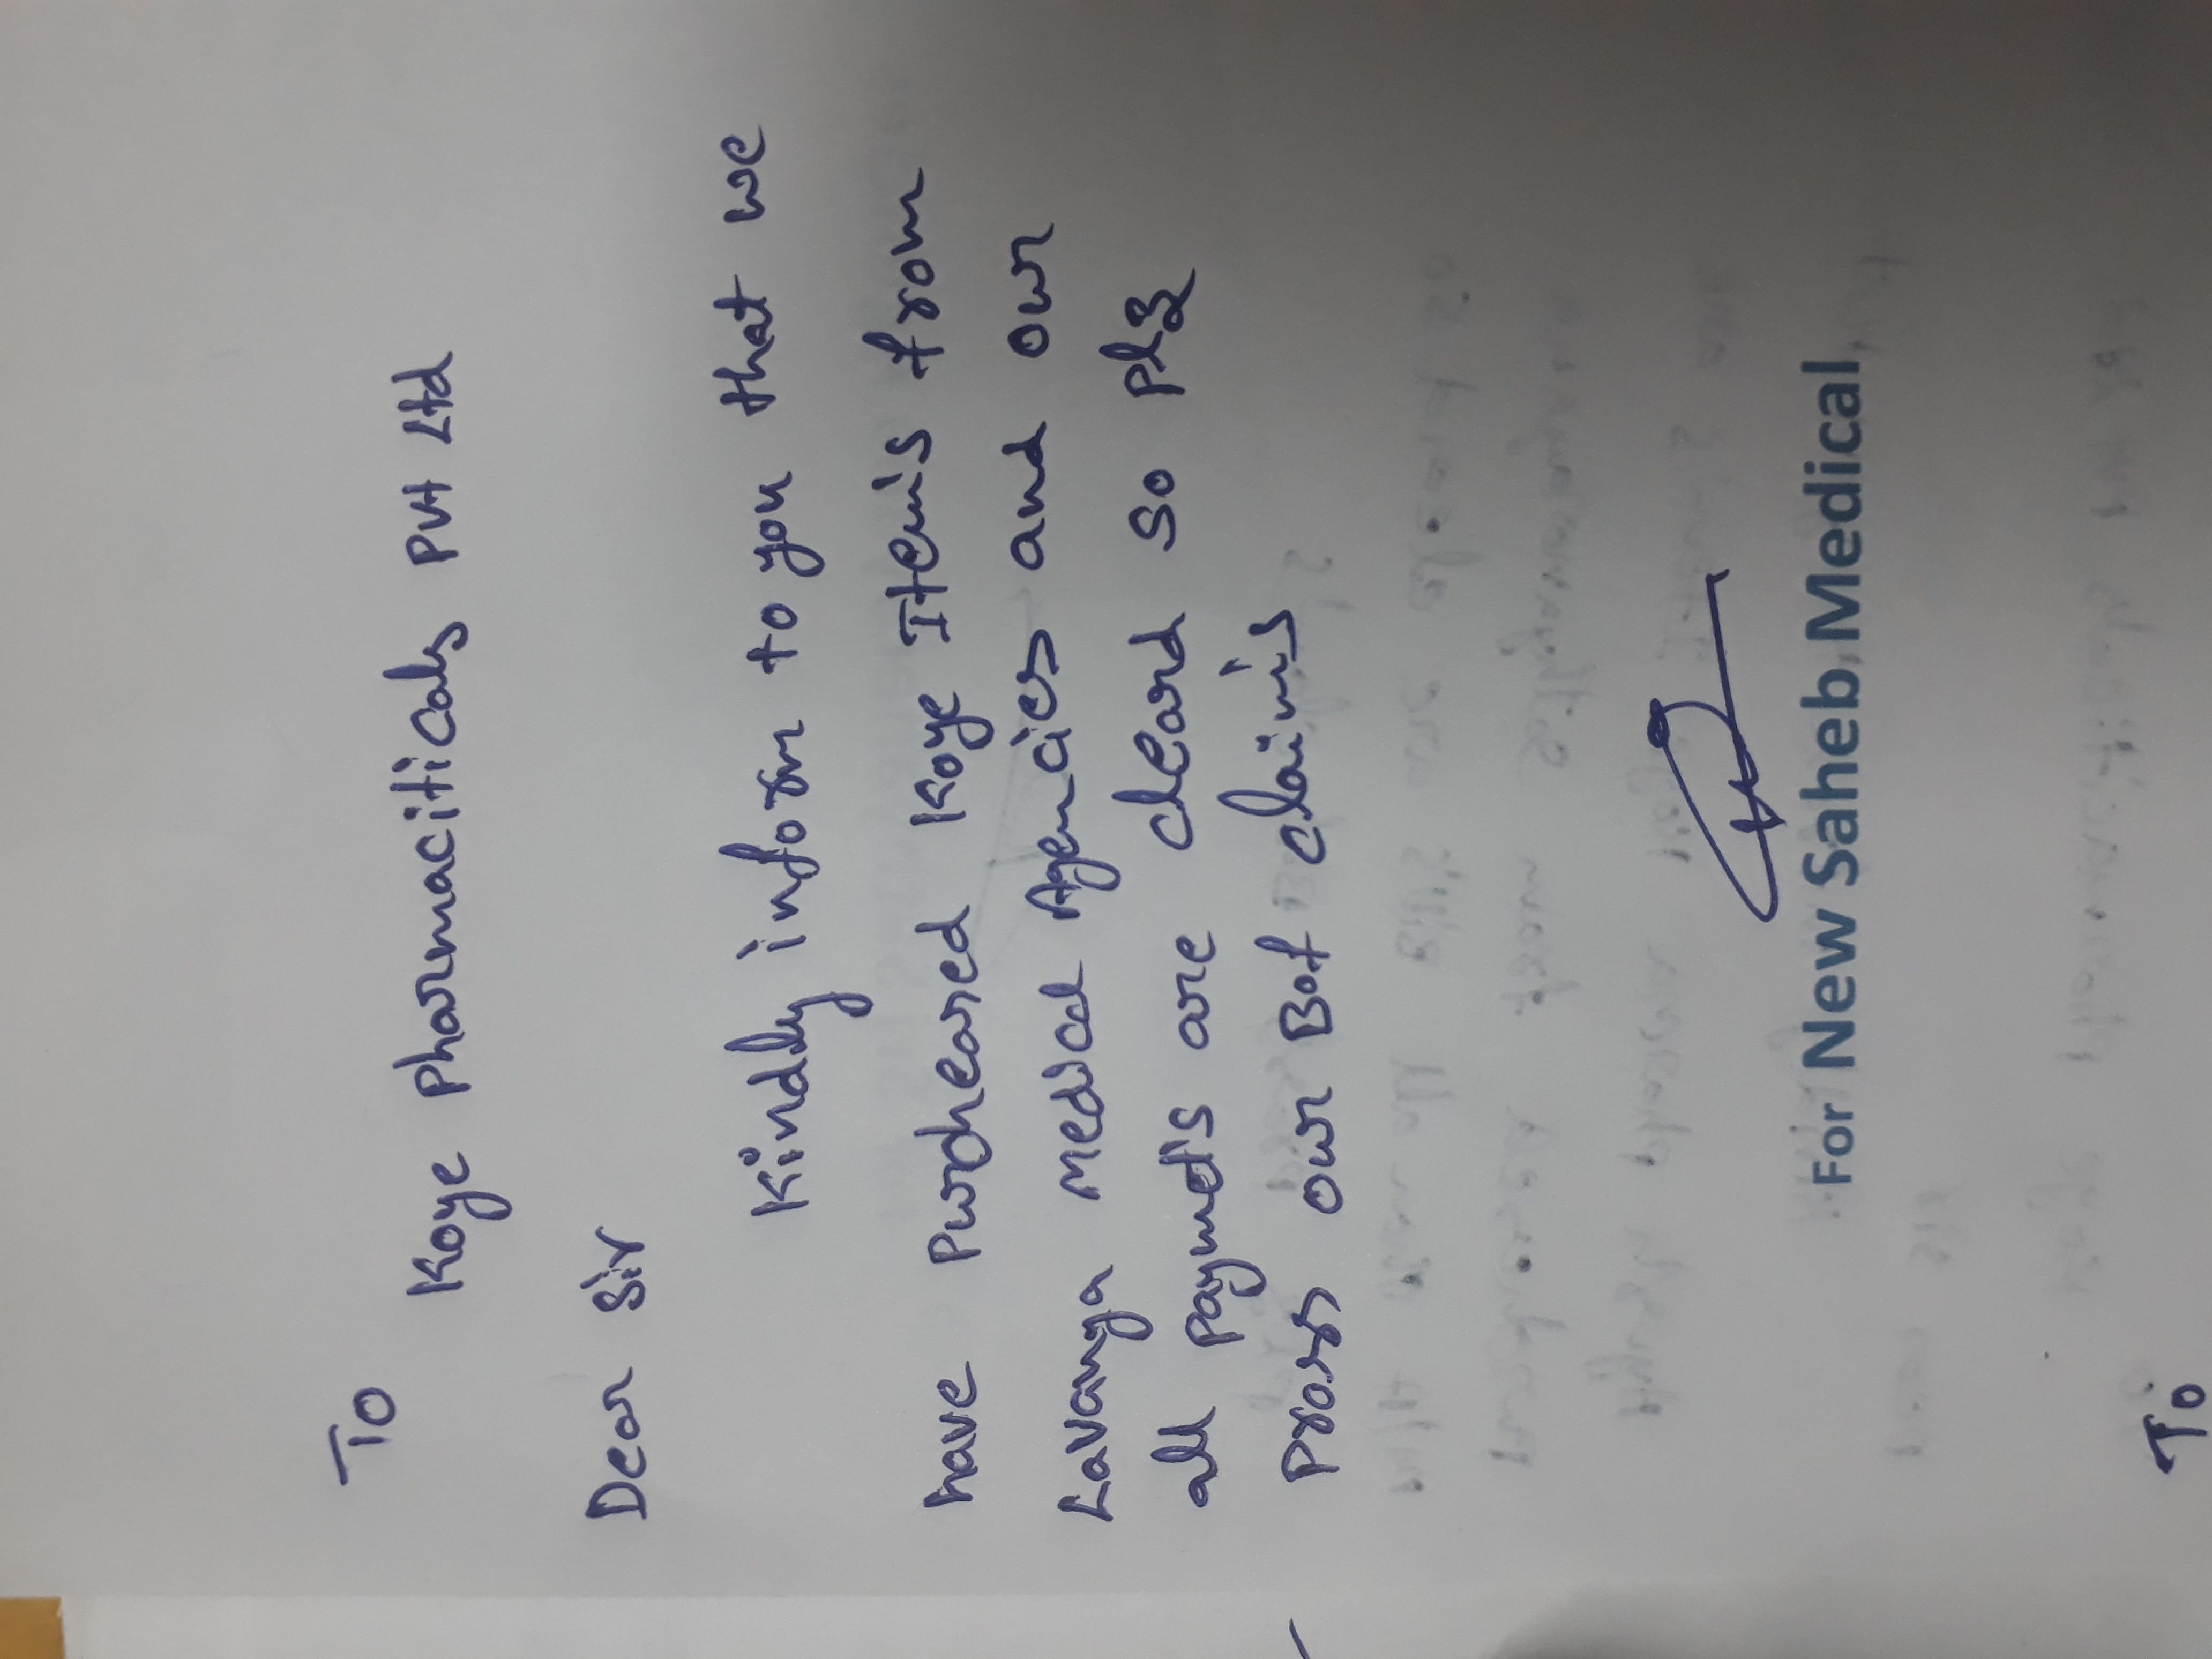 To
Koye Pharmaciticals Pvt Ltd
Dear Sir
Kindly inform to you that we
have Purcheared Koye Items from
Lavanya Medical Agencies and our
all Paymets are cleard so Plz
our Bot claims
For New Saheb Medical
To